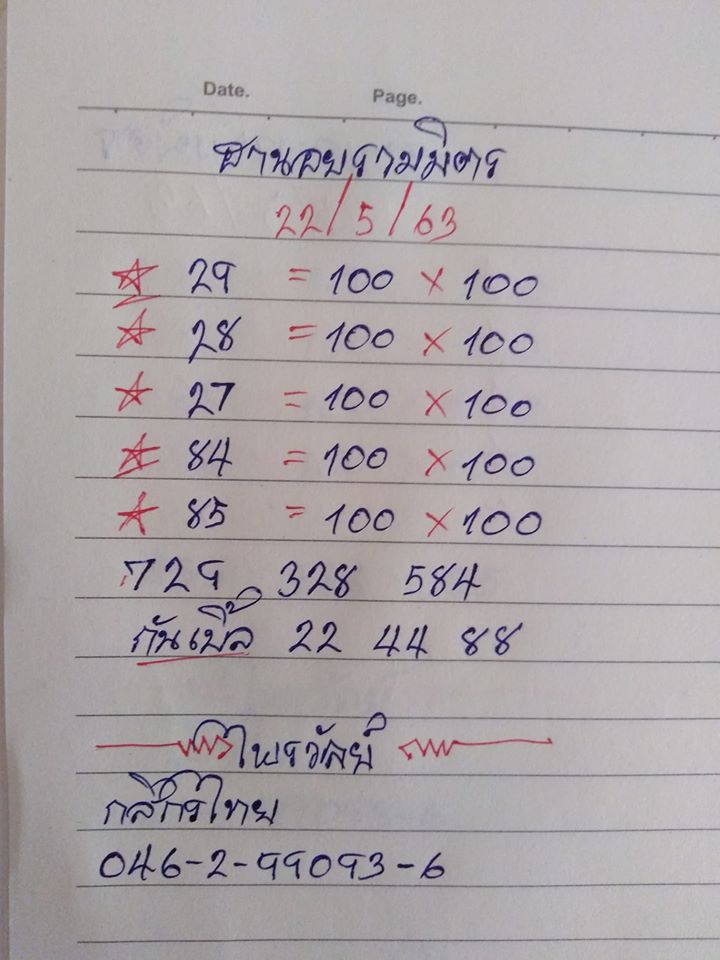 Date. Page.
ฮานอยรวมมิตร
22/5/63
29 = 100 × 100
28 = 100 × 100
27 = 100 × 100
84 = 100 × 100
85 = 100 × 100
729 328 584
กันเบิ้ล 22 44 88
ไพรวัลย์
กสิกรไทย
046-2-99093-6